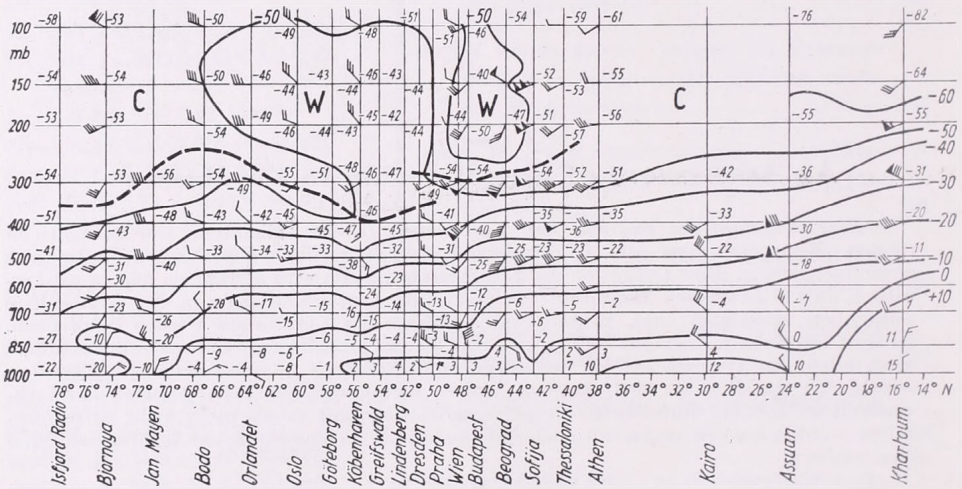 -58 -53 -50 -50 -49 -51 -48 -51 -50 -46 -54 -59 -61 -76 -82
100
mb
-54 -54 -50 -46 -43 -46 -43 -40 -52 -55 -64
150
-44 -44 -44 -53
C W W C -60
-53 -53 -49 -46 -45 -42 -47 -51 -56 -55 -55
200
-54 -46 -44 -43 -44 -50 -57 -50
-40
-54 -53 -56 -54 -55 -51 -46 -47 -54 -54 -54 -52 -51 -42 -36 -31
300
-49 -49 -30
-51 -48 -43 -42 -45 -46 -41 -35 -35 -33 -20 -20
400
-43 -45 -47 -40 -36 -30
-41 -33 -34 -33 -45 -32 -31 -25 -23 -23 -22 -22 -11 -10
500
-31 -40 -38 -25 -18 0
-30 -23
600
-24 -12 +10
-31 -23 -20 -17 -15 -16 -14 -13 -11 -6 -5 -2 -4 -7 1
700
-26 -15 -15 -13 -6
-27 -10 -20 -6 -5 -4 -4 -3 -2 -2 0 11 F
850
-9 -8 -6 -4 4 2 3 4
-22 -20 -10 -4 -4 -8 -1 2 3 4 2 3 3 3 7 10 12 10 15
1000
78° 76° 74° 72° 70° 68° 66° 64° 62° 60° 58° 56° 54° 52° 50° 48° 46° 44° 42° 40° 38° 36° 34° 32° 30° 28° 26° 24° 22° 20° 18° 16° 14° N
Isfjord Radio
Bjornoya
Jan Mayen
Bodo
Orlandet
Oslo
Göteborg
Köbenhaven
Greifswald
Lindenberg
Dresden
Praha
Wien
Budapest
Beograd
Sofija
Thessaloniki
Athen
Kairo
Assuan
Khartoum